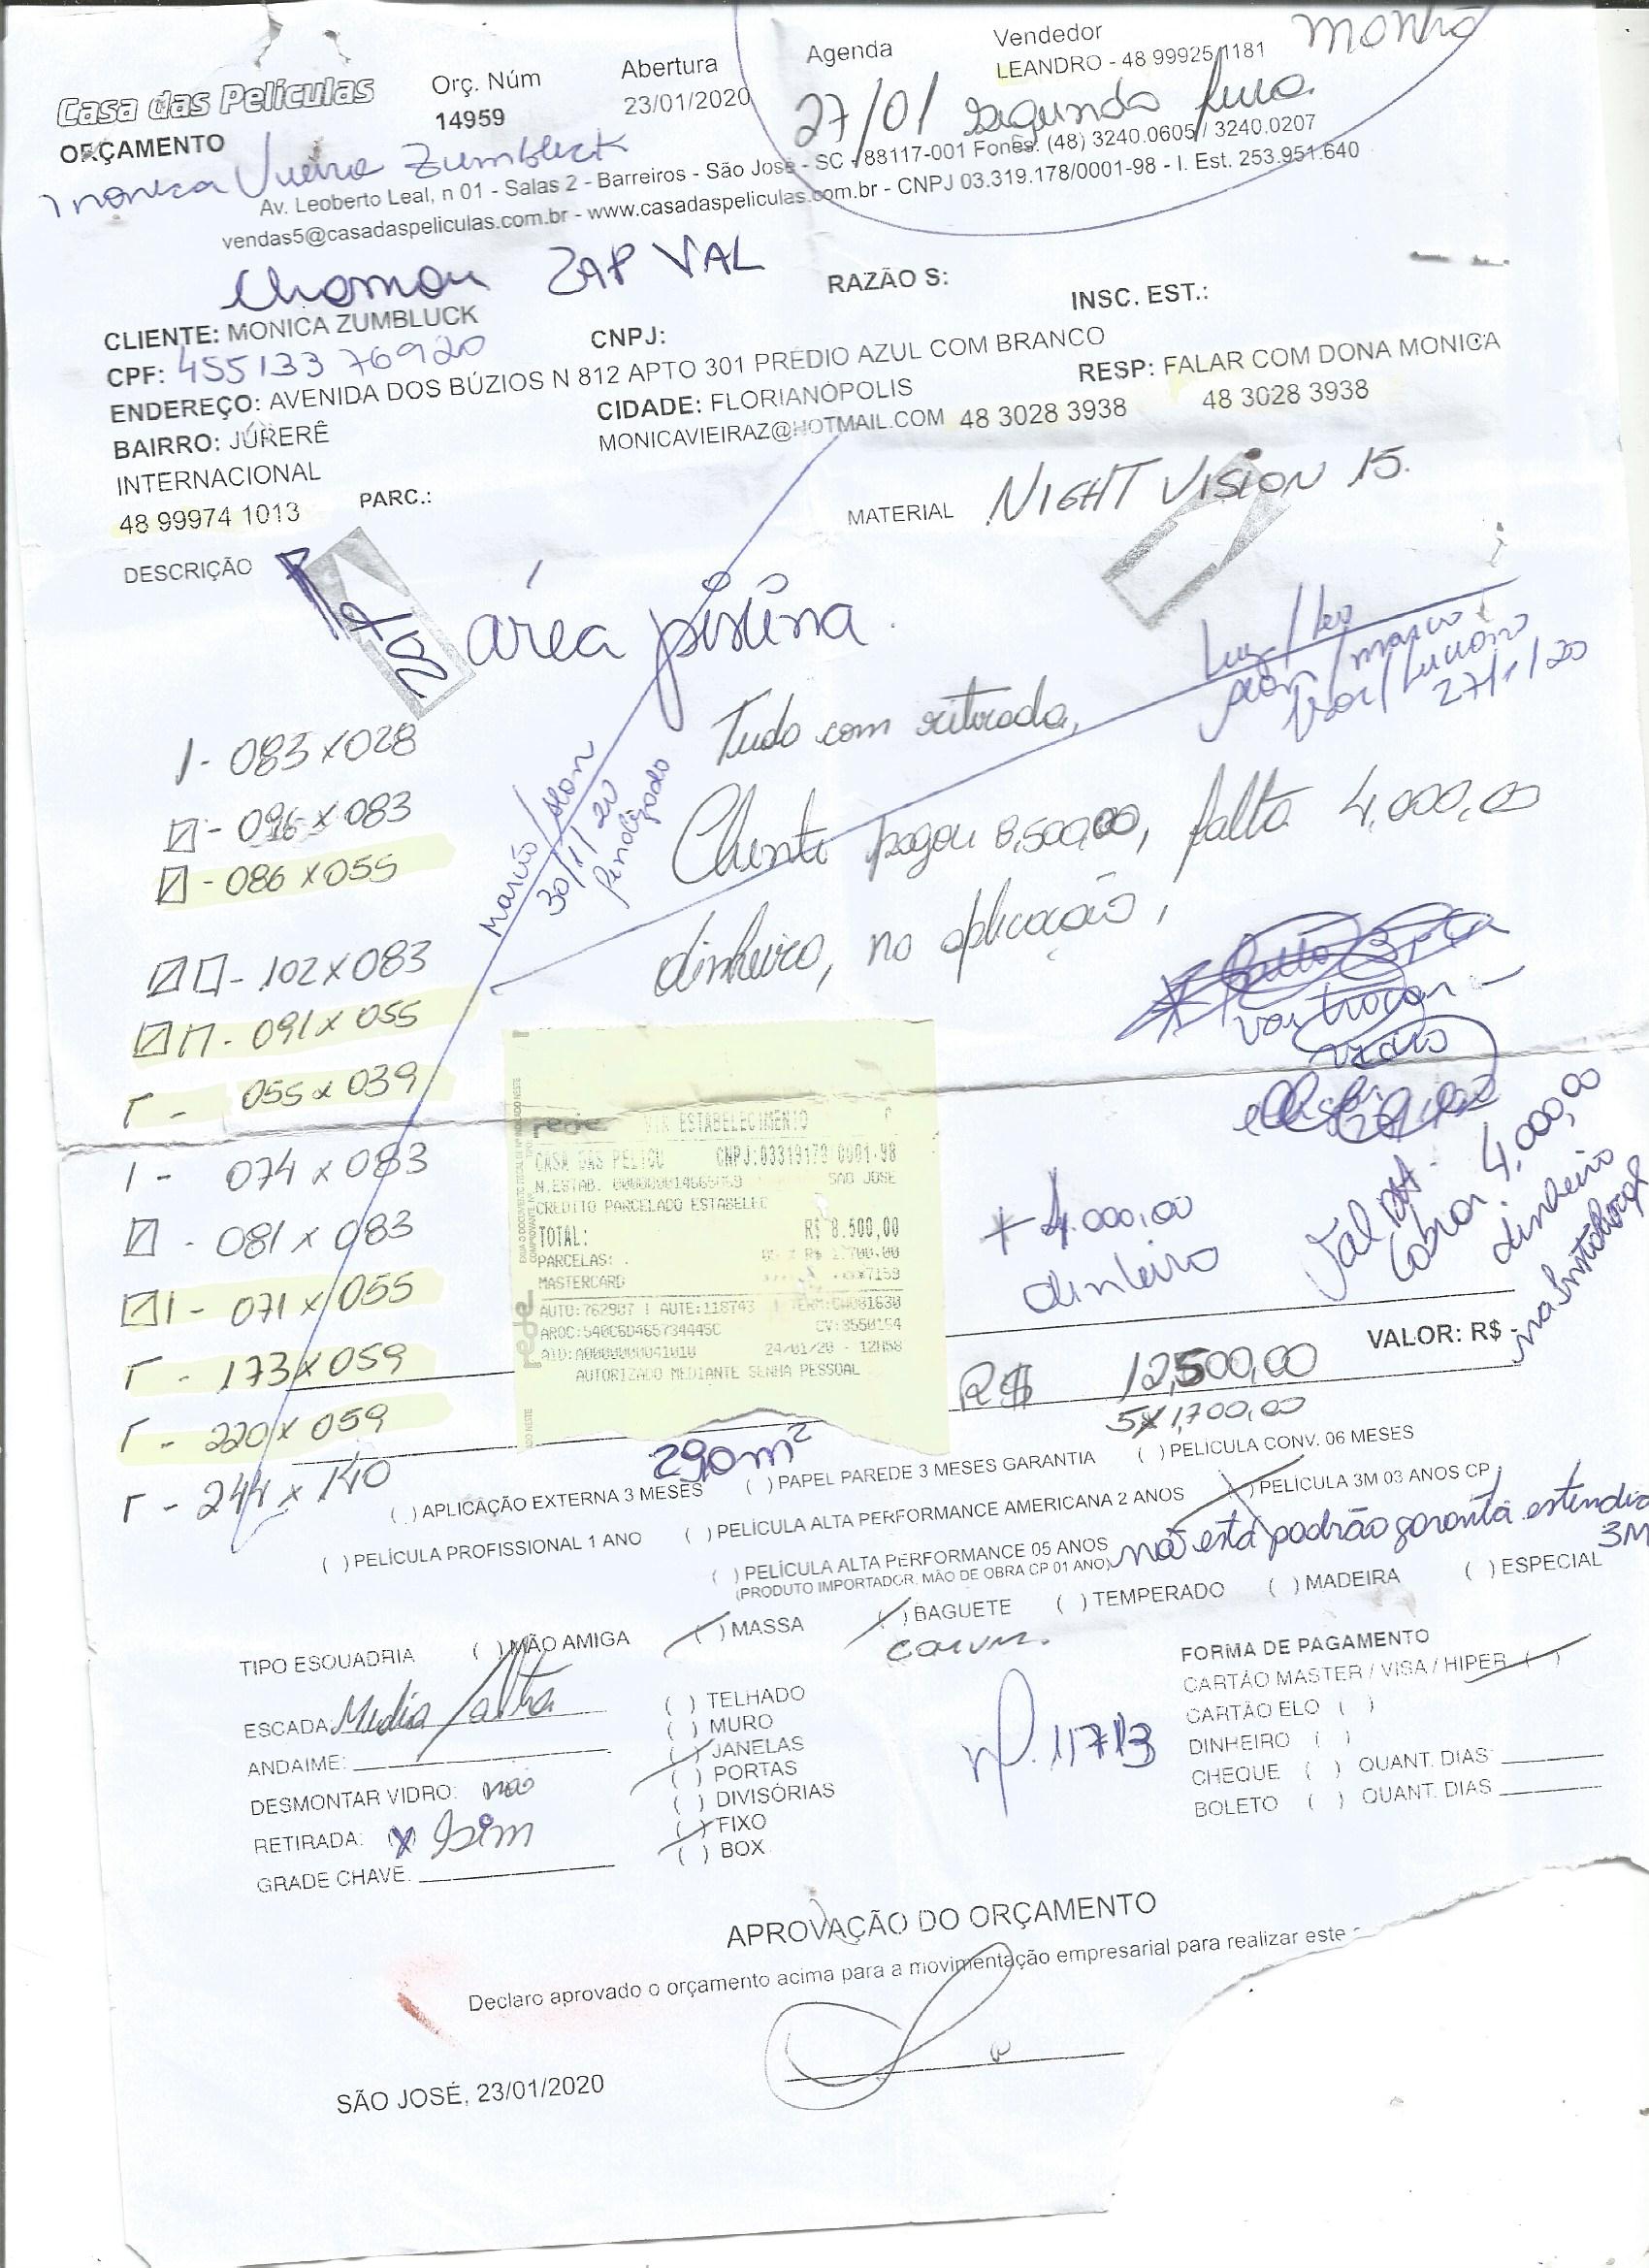 Casa das Películas
Orç. Núm
Abertura
Agenda
Vendedor
manhã
ORÇAMENTO
14959
23/01/2020
27/01 segunda feira
LEANDRO - 48 99925 1181
Monica Vieira Zumbluck
Av. Leoberto Leal, n 01 - Salas 2 - Barreiros - São José - SC - 88117-001 Fones: (48) 3240.0605 / 3240.0207
vendas5@casadaspeliculas.com.br - www.casadaspeliculas.com.br - CNPJ 03.319.178/0001-98 - I. Est. 253.951.640
chamar ZAP VAL
CLIENTE: MONICA ZUMBLUCK
RAZÃO S:
CPF: 45513376920
CNPJ:
INSC. EST.:
ENDEREÇO: AVENIDA DOS BÚZIOS N 812 APTO 301 PRÉDIO AZUL COM BRANCO
BAIRRO: JURERÊ
INTERNACIONAL
CIDADE: FLORIANÓPOLIS
RESP: FALAR COM DONA MONICA
MONICAVIEIRAZ@HOTMAIL.COM 48 3028 3938
48 3028 3938
48 99974 1013
PARC.:
MATERIAL NIGHT VISION 15.
DESCRIÇÃO
área piscina.
27/1/20
Tudo com retirada,
Marcio/Alan
30/1/20
finalizado
Cliente pagou 8.500,00, falta 4.000,00
dinheiro, no aplicação,
1 - 083 x 028
- 096 x 083
- 086 x 055
- 102 x 083
- 091 x 055
- 055 x 039
1 - 074 x 083
- 081 x 083
- 071 x 055
- 173 x 059
- 220 x 059
- 244 x 140
vai trocar
vidro
rede
VIA ESTABELECIMENTO
CASA DAS PELICU CNPJ:03319178 0001-98
SAO JOSE
CREDITO PARCELADO ESTABELEC
TOTAL: R$ 8.500,00
PARCELAS:
MASTERCARD
AUTO:762907 | AUTE:118743
AROC:540C6D465734445C
24/01/20 - 12H58
AUTORIZADO MEDIANTE SENHA PESSOAL
+ 4.000,00
dinheiro
cobrar 4.000,00
dinheiro
VALOR: R$ -
R$ 12,500,00
5x 1,700,00
290m²
( ) APLICAÇÃO EXTERNA 3 MESES
( ) PAPEL PAREDE 3 MESES GARANTIA
( ) PELÍCULA CONV. 06 MESES
( ) PELÍCULA PROFISSIONAL 1 ANO
( ) PELÍCULA ALTA PERFORMANCE AMERICANA 2 ANOS
( ) PELÍCULA 3M 03 ANOS CP
( ) PELÍCULA ALTA PERFORMANCE 05 ANOS
(PRODUTO IMPORTADOR, MÃO DE OBRA CP 01 ANO)
não está padrão garantia
3M
TIPO ESQUADRIA
( ) MÃO AMIGA
( ) MASSA
( ) BAGUETE
( ) TEMPERADO
( ) MADEIRA
( ) ESPECIAL
ESCADA: Media/alta
ANDAIME:
DESMONTAR VIDRO: não
RETIRADA: (x) sim
GRADE CHAVE:
( ) TELHADO
( ) MURO
( ) JANELAS
( ) PORTAS
( ) DIVISÓRIAS
( ) FIXO
( ) BOX
11713
FORMA DE PAGAMENTO
CARTÃO MASTER / VISA / HIPER ( )
CARTÃO ELO ( )
DINHEIRO ( )
CHEQUE ( ) QUANT. DIAS:
BOLETO ( ) QUANT. DIAS
APROVAÇÃO DO ORÇAMENTO
Declaro aprovado o orçamento acima para a movimentação empresarial para realizar este
SÃO JOSÉ, 23/01/2020